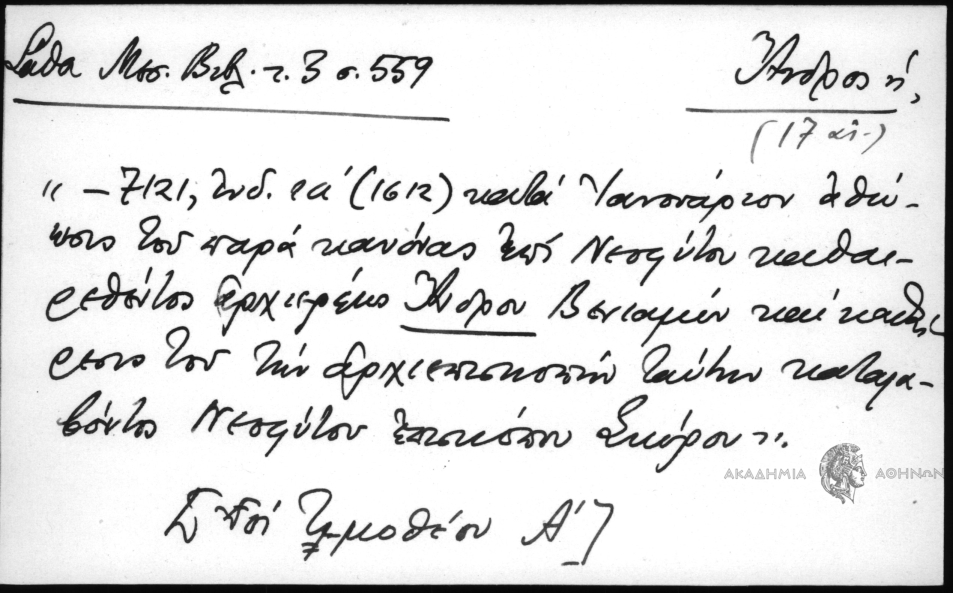 Σάθα Μεσ. Βιβλ. τ. 3 σ. 559
Ἄνδρος ἡ,
(17 αἰ.)
« — 7121, ἰνδ. ια΄ (1612) κατά Ἰανουάριον ἀθώ-
ωσις τοῦ παρά κανόνας ὑπό Νεοφύτου καθαι-
ρεθέντος ἀρχιερέως Ἄνδρου Βενιαμίν καί καθαί-
ρεσις τοῦ τήν ἀρχιεπισκοπήν ταύτην καταλα-
βόντος Νεοφύτου ἐπισκόπου Σκύρου».
[ἐπί Τιμοθέου Α΄]
ΑΚΑΔΗΜΙΑ ΑΘΗΝΩΝ